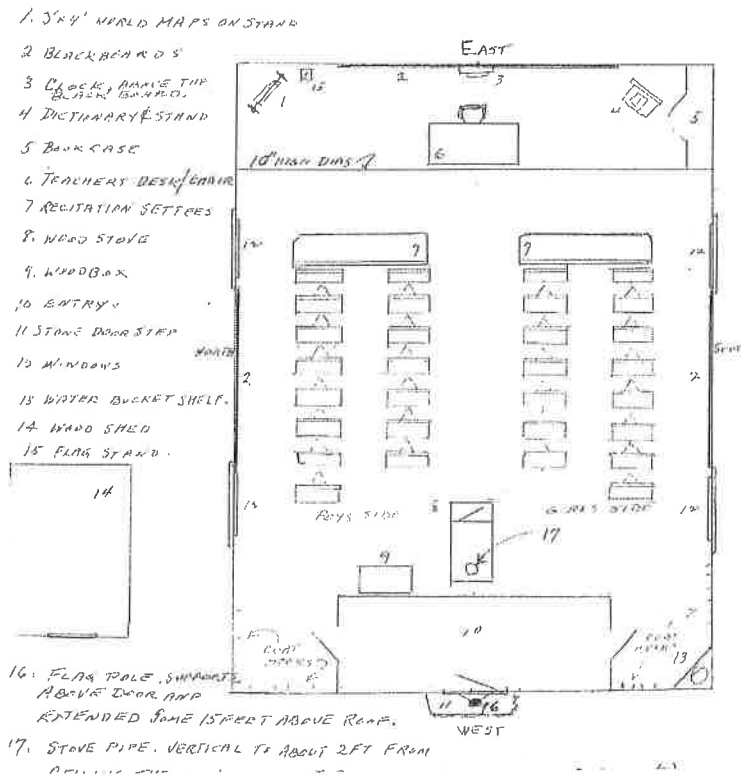 1. 3'x4' WORLD MAPS ON STAND
2 BLACKBOARDS
3 CLOCK, ABOVE THE
BLACK BOARD.
4 DICTIONARY & STAND
5 BOOKCASE
6 TEACHERS DESK/CHAIR
7 RECITATION SETTEES
8. WOOD STOVE
9. WOODBOX
10 ENTRY.
11 STONE DOOR STEP
12 WINDOWS
13 WATER BUCKET SHELF.
14 WOOD SHED
15 FLAG STAND.
16. FLAG POLE, SUPPORTS
ABOVE DOOR AND
EXTENDED SOME 15 FEET ABOVE ROOF.
17. STOVE PIPE. VERTICAL TO ABOUT 2FT FROM
EAST
1
15
2
3
4
5
6
10" HIGH DIAS
12
7
7
12
NORTH
2
2
12
BOYS SIDE
8
GIRLS SIDE
12
17
9
14
10
COAT
HOOKS
COAT
HOOKS
13
11
16
WEST